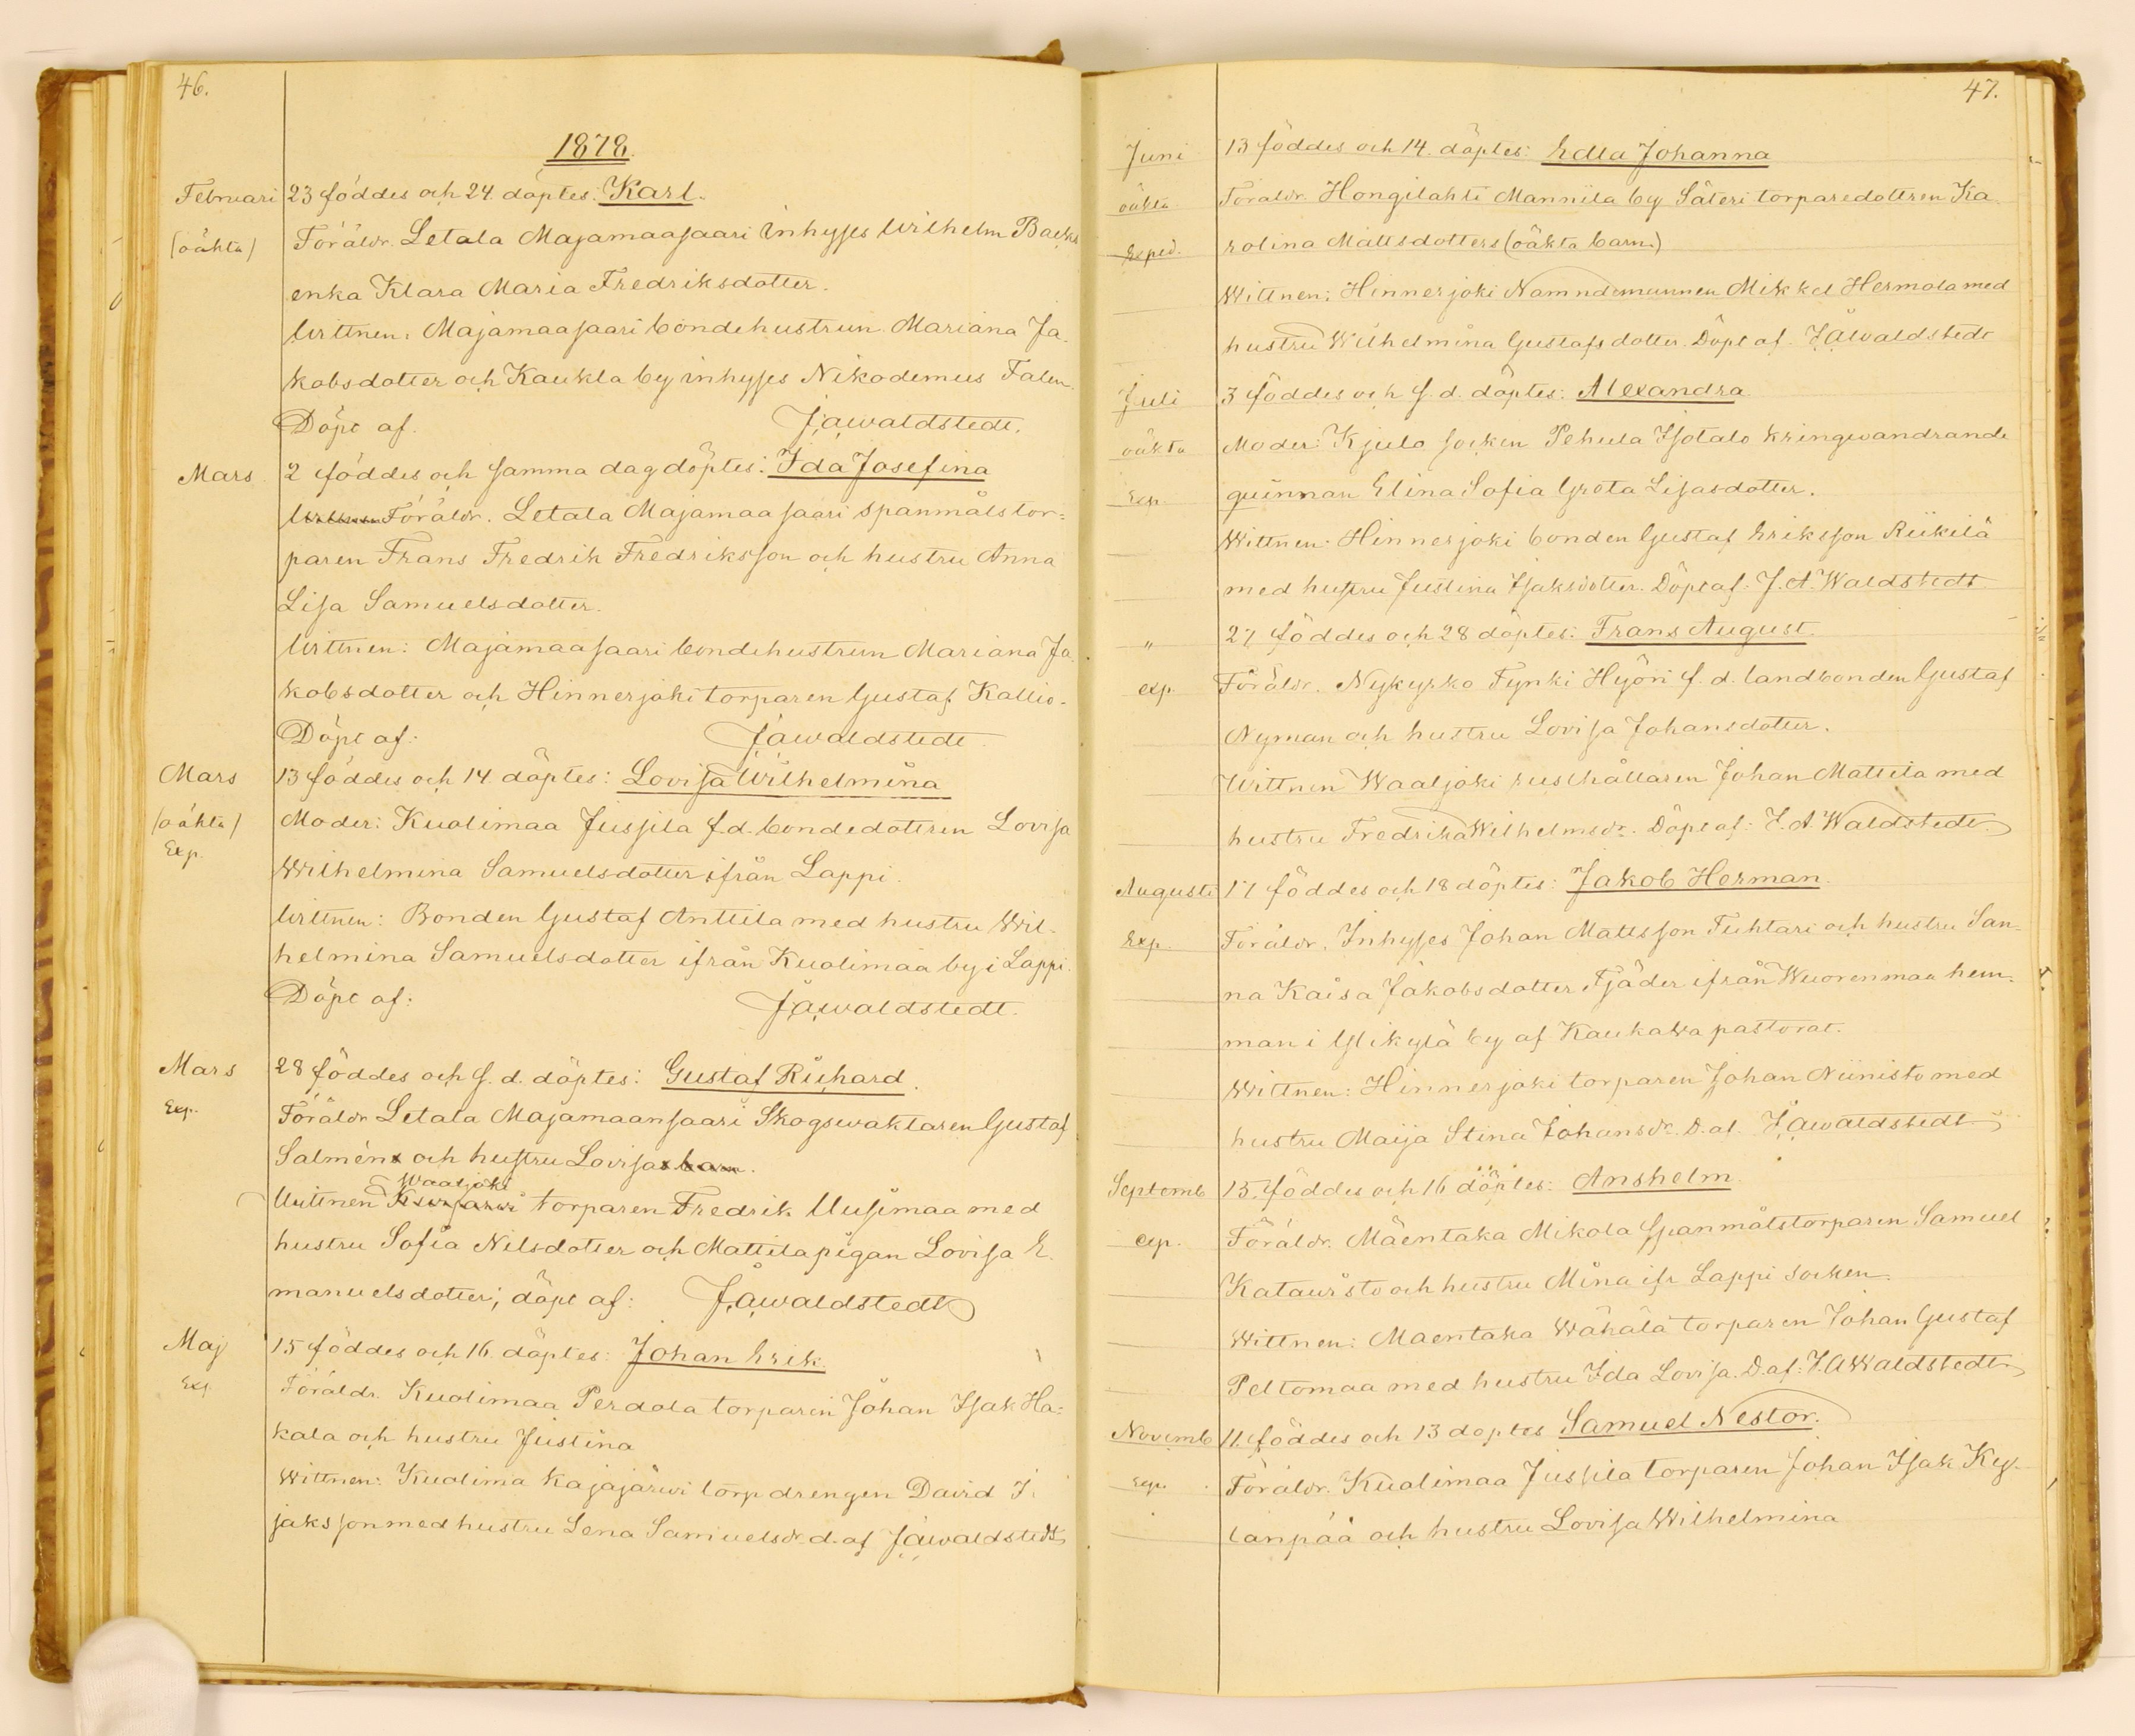 46.
1878.
Februari 23 föddes och 24. döptes: Karl.
(oäkta) Föräldr. Letala Majamaasaari inhyses Wilhelm Backs
enka Klara Maria Fredriksdotter.
Wittnen: Majamaasaari bondehustrun Mariana Ja-
kobsdotter och Kaukla by inhyses Nikodemus Falen.
Döpt af. J.A.Waldstedt.
Mars 2 föddes och samma dag döptes: Ida Josefina
Föräldr. Letala Majamaasaari spanmålstor=
paren Frans Fredrik Fredriksson och hustru Anna
Lisa Samuelsdotter.
Wittnen: Majamaasaari bondehustrun Mariana Ja-
kobsdotter och Hinnerjoki torparen Gustaf Kallio-
Döpt af: J.A.Waldstedt
Mars 13 föddes och 14 döptes: Lovisa Wilhelmina
(oäkta) Moder: Kuolimaa Jussila f.d. bondedottren Lovisa
Exp. Wilhelmina Samuelsdotter ifrån Lappi.
Wittnen: Bonden Gustaf Anttila med hustru Wil-
helmina Samuelsdotter ifrån Kuolimaa by i Lappi.
Döpt af: J.A.Waldstedt.
Mars 28 föddes och s. d. döptes: Gustaf Richard.
Exp. Föräldr Letala Majamaansaari Skogswaktaren Gustaf
Salmén och hustru Lovisa
Waaljoki
Wittnen torparen Fredrik Uusimaa med
hustru Sofia Nilsdotter och Mattila pigan Lovisa E.
manuelsdotter; döpt af: J.A.Waldstedt
Maj 15 föddes och 16. döptes: Johan Erik.
Exp Föräldr. Kuolimaa Perdola torparen Johan Isak Ha=
kala och hustru Justina
Wittnen: Kuolima Kajajärwi torpdrengen David I.
saksson med hustru Lena Samuelsdr. d. af J.A.Waldstedt
47.
Juni 13 föddes och 14. döptes: Edla Johanna
oäkta Föräldr. Hongilahti Mannila by Säteri torparedottren Ka
Exped. rolina Mattsdotters (oäkta barn)
Wittnen: Hinnerjoki Nämndemannen Mikkel Hermola med
hustru Wilhelmina Gustafsdotter. Döpt af. J.A.Waldstedt
Juli 3 föddes och s. d. döptes: Alexandra
oäkta Moder: Kjulo socken Pehula Isotalo kringwandrande
Exp. quinnan Elina Sofia Greta Lisasdotter.
Wittnen: Hinnerjoki bonden Gustaf Eriksson Riikilä
med hustru Justina Isaksdotter. Döpt af: J.A. Waldstedt
" 27 föddes och 28 döptes: Frans August.
exp. Föräldr. Nykyrko Tynki Hyöri f. d. landbonden Gustaf
Nyman och hustru Lovisa Johansdotter.
Wittnen Waaljoki rusthållaren Johan Mattila med
hustru Fredrika Wilhelmsdr. Döpt af: J.A. Waldstedt.
Augusti 17 föddes och 18 döptes: Jakob Herman.
Exp. Föräldr. Inhyses Johan Mattsson Tuhtari och hustru San-
na Kaisa Jakobsdotter Fjäder ifrån Wuorenmaa hem-
man i Ylikylä by af Kaukawa pastorat.
Wittnen: Hinnerjoki torparen Johan Niinisto med
hustru Maija Stina Johansdr. D. af. J.A.Waldstedt
Septemb 15. föddes och 16 döptes: Anshelm.
exp. Föräldr. Mäentaka Mikola Spanmålstorparen Samuel
Katauristo och hustru Mina ifr Lappi socken.
Wittnen: Maentaka Wähälä torparen Johan Gustaf
Peltomaa med hustru Ida Lovisa. D.af: J.A.Waldstedt
Novemb 11. föddes och 13 doptes Samuel Nestor.
Exp. Föräldr. Kuolimaa Jussila torparen Johan Isak Ky-
länpää och hustru Lovisa Wilhelmina